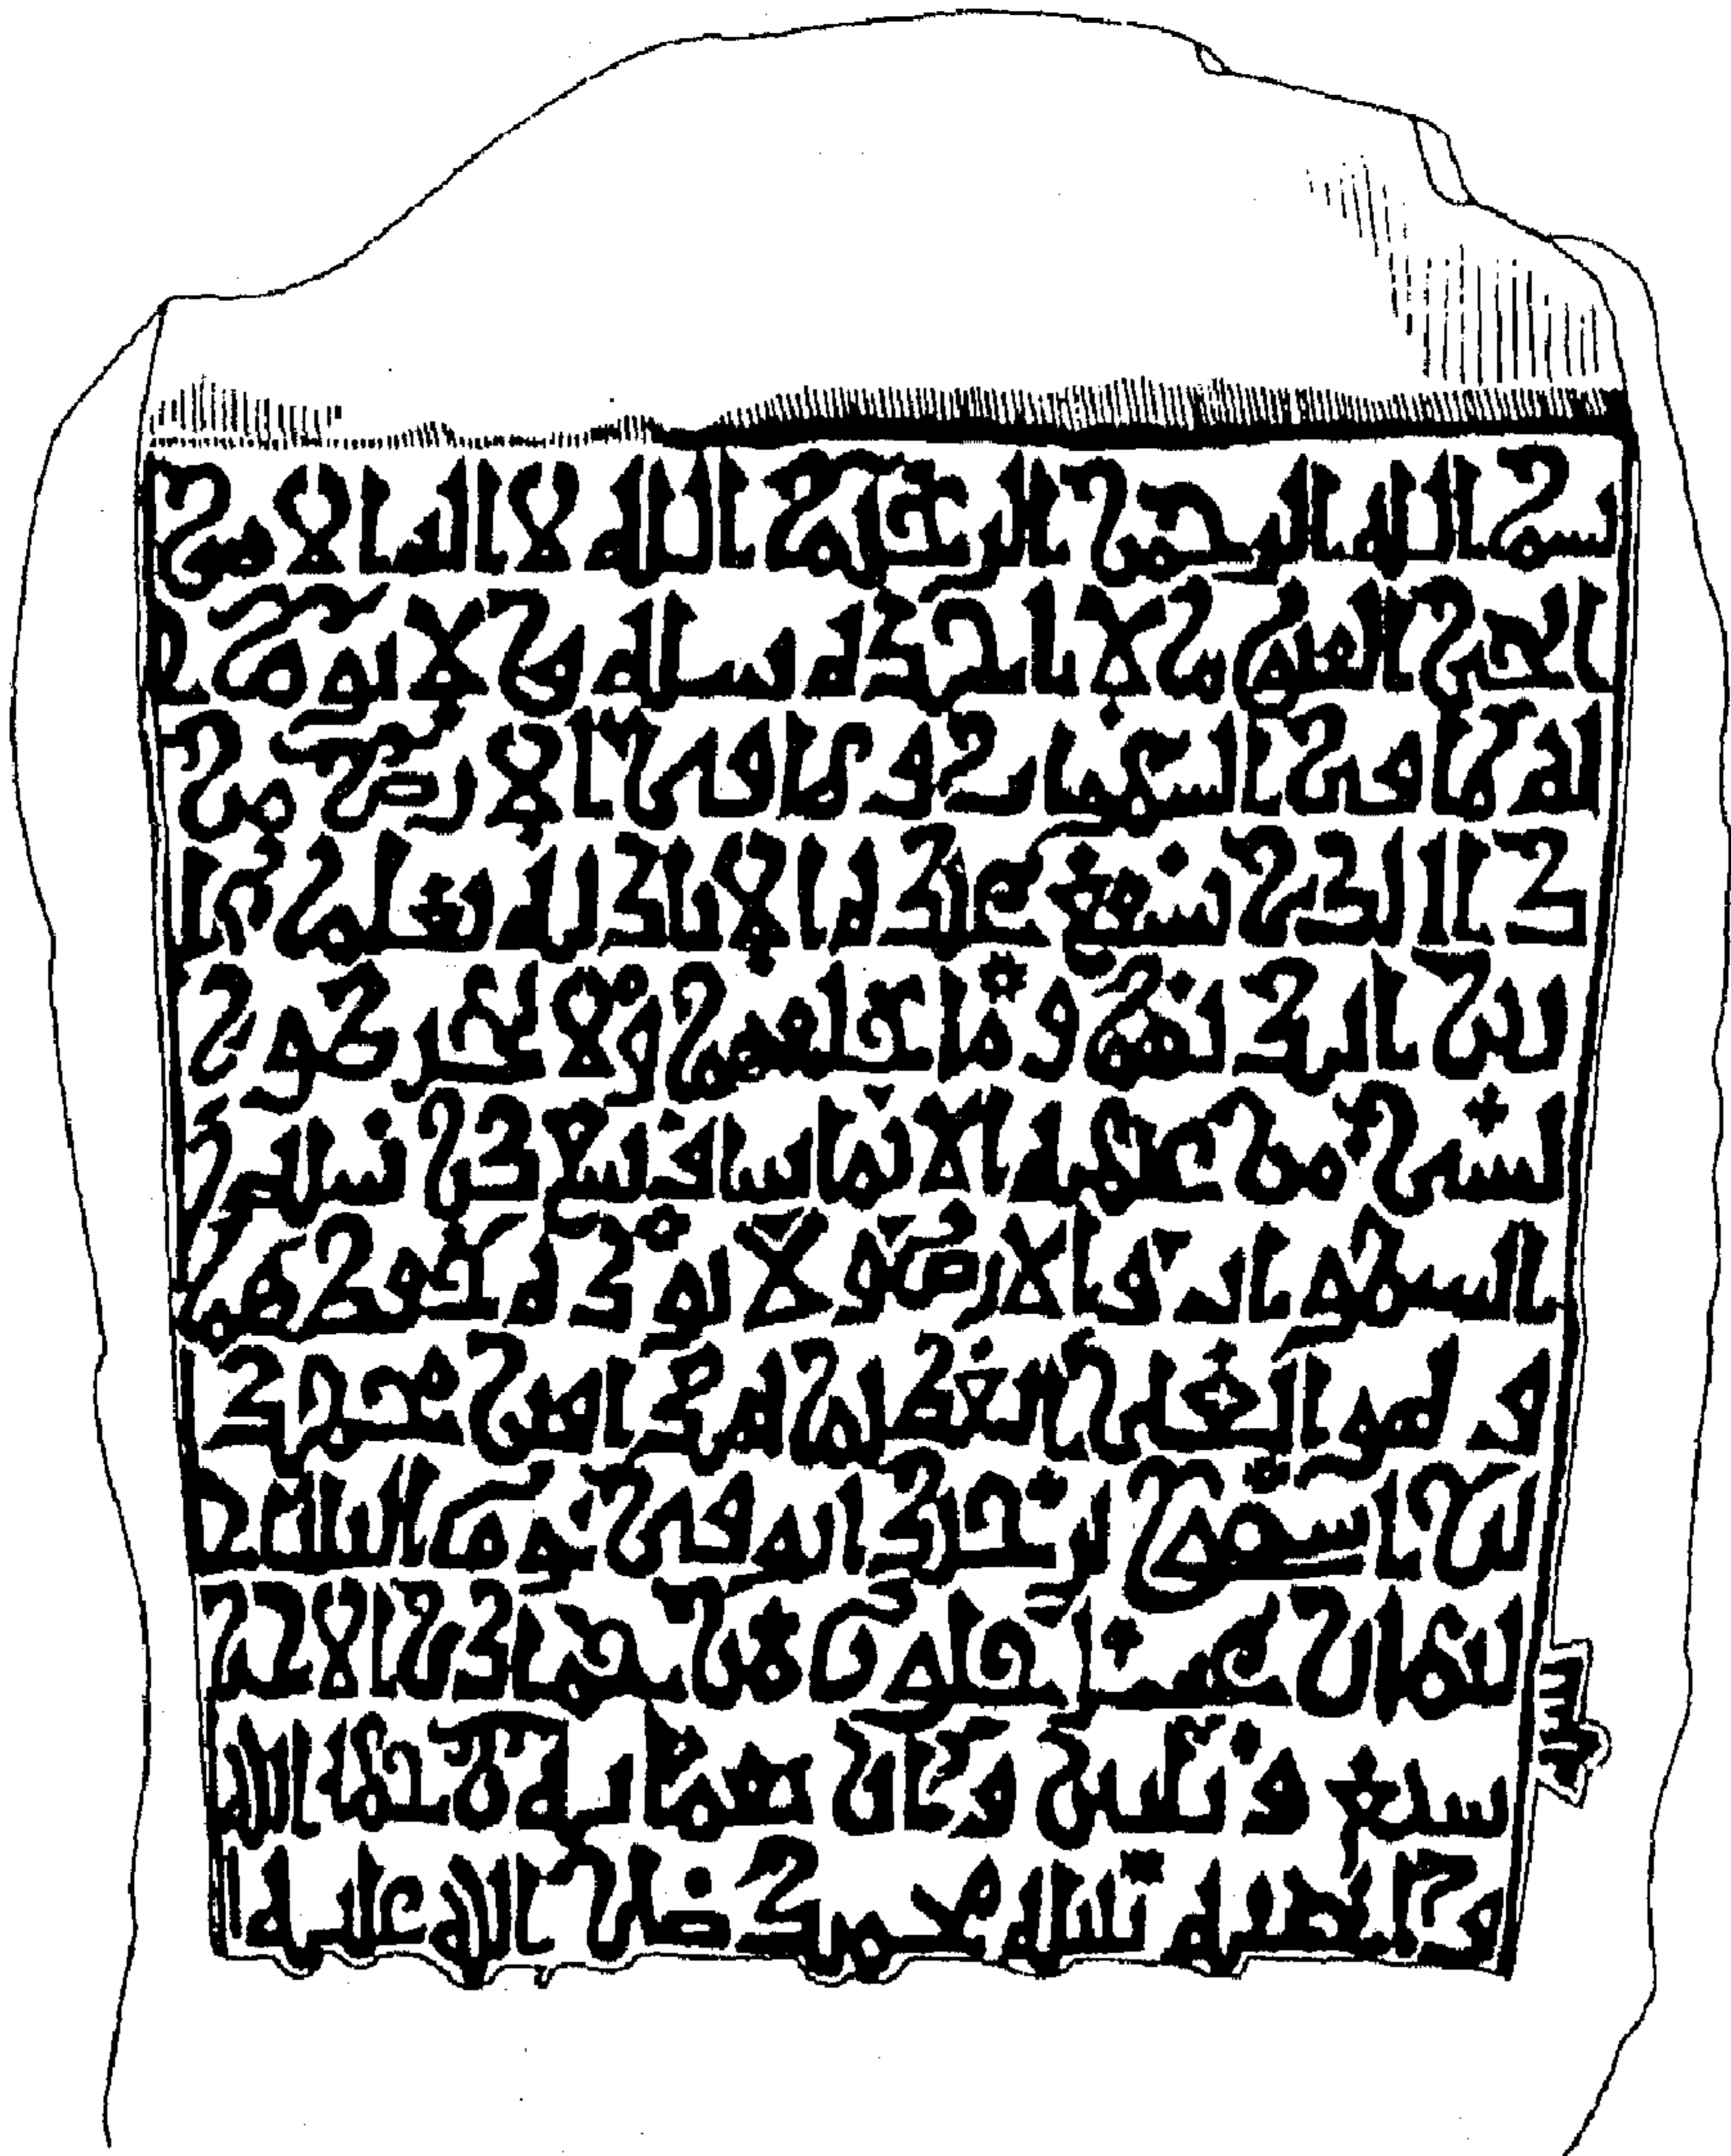 بسم الله الرحمن الرحيم الله لا اله الا هو
الحي القيوم لا تاخذه سنة ولا نوم
له ما في السموات وما في الارض من
ذا الذي يشفع عنده الا باذنه يعلم ما
بين ايديهم وما خلفهم ولا يحيطون
بشي من علمه الا بما شا وسع كرسيه
السموات والارض ولا يوده حفظهما
وهو العلي العظيم هذا قبر محمد
بن توفي يوم
لثمان عشر خلون من جمادى الاخر
سنة رحمة الله
نبيه محمد صلى الله عليه